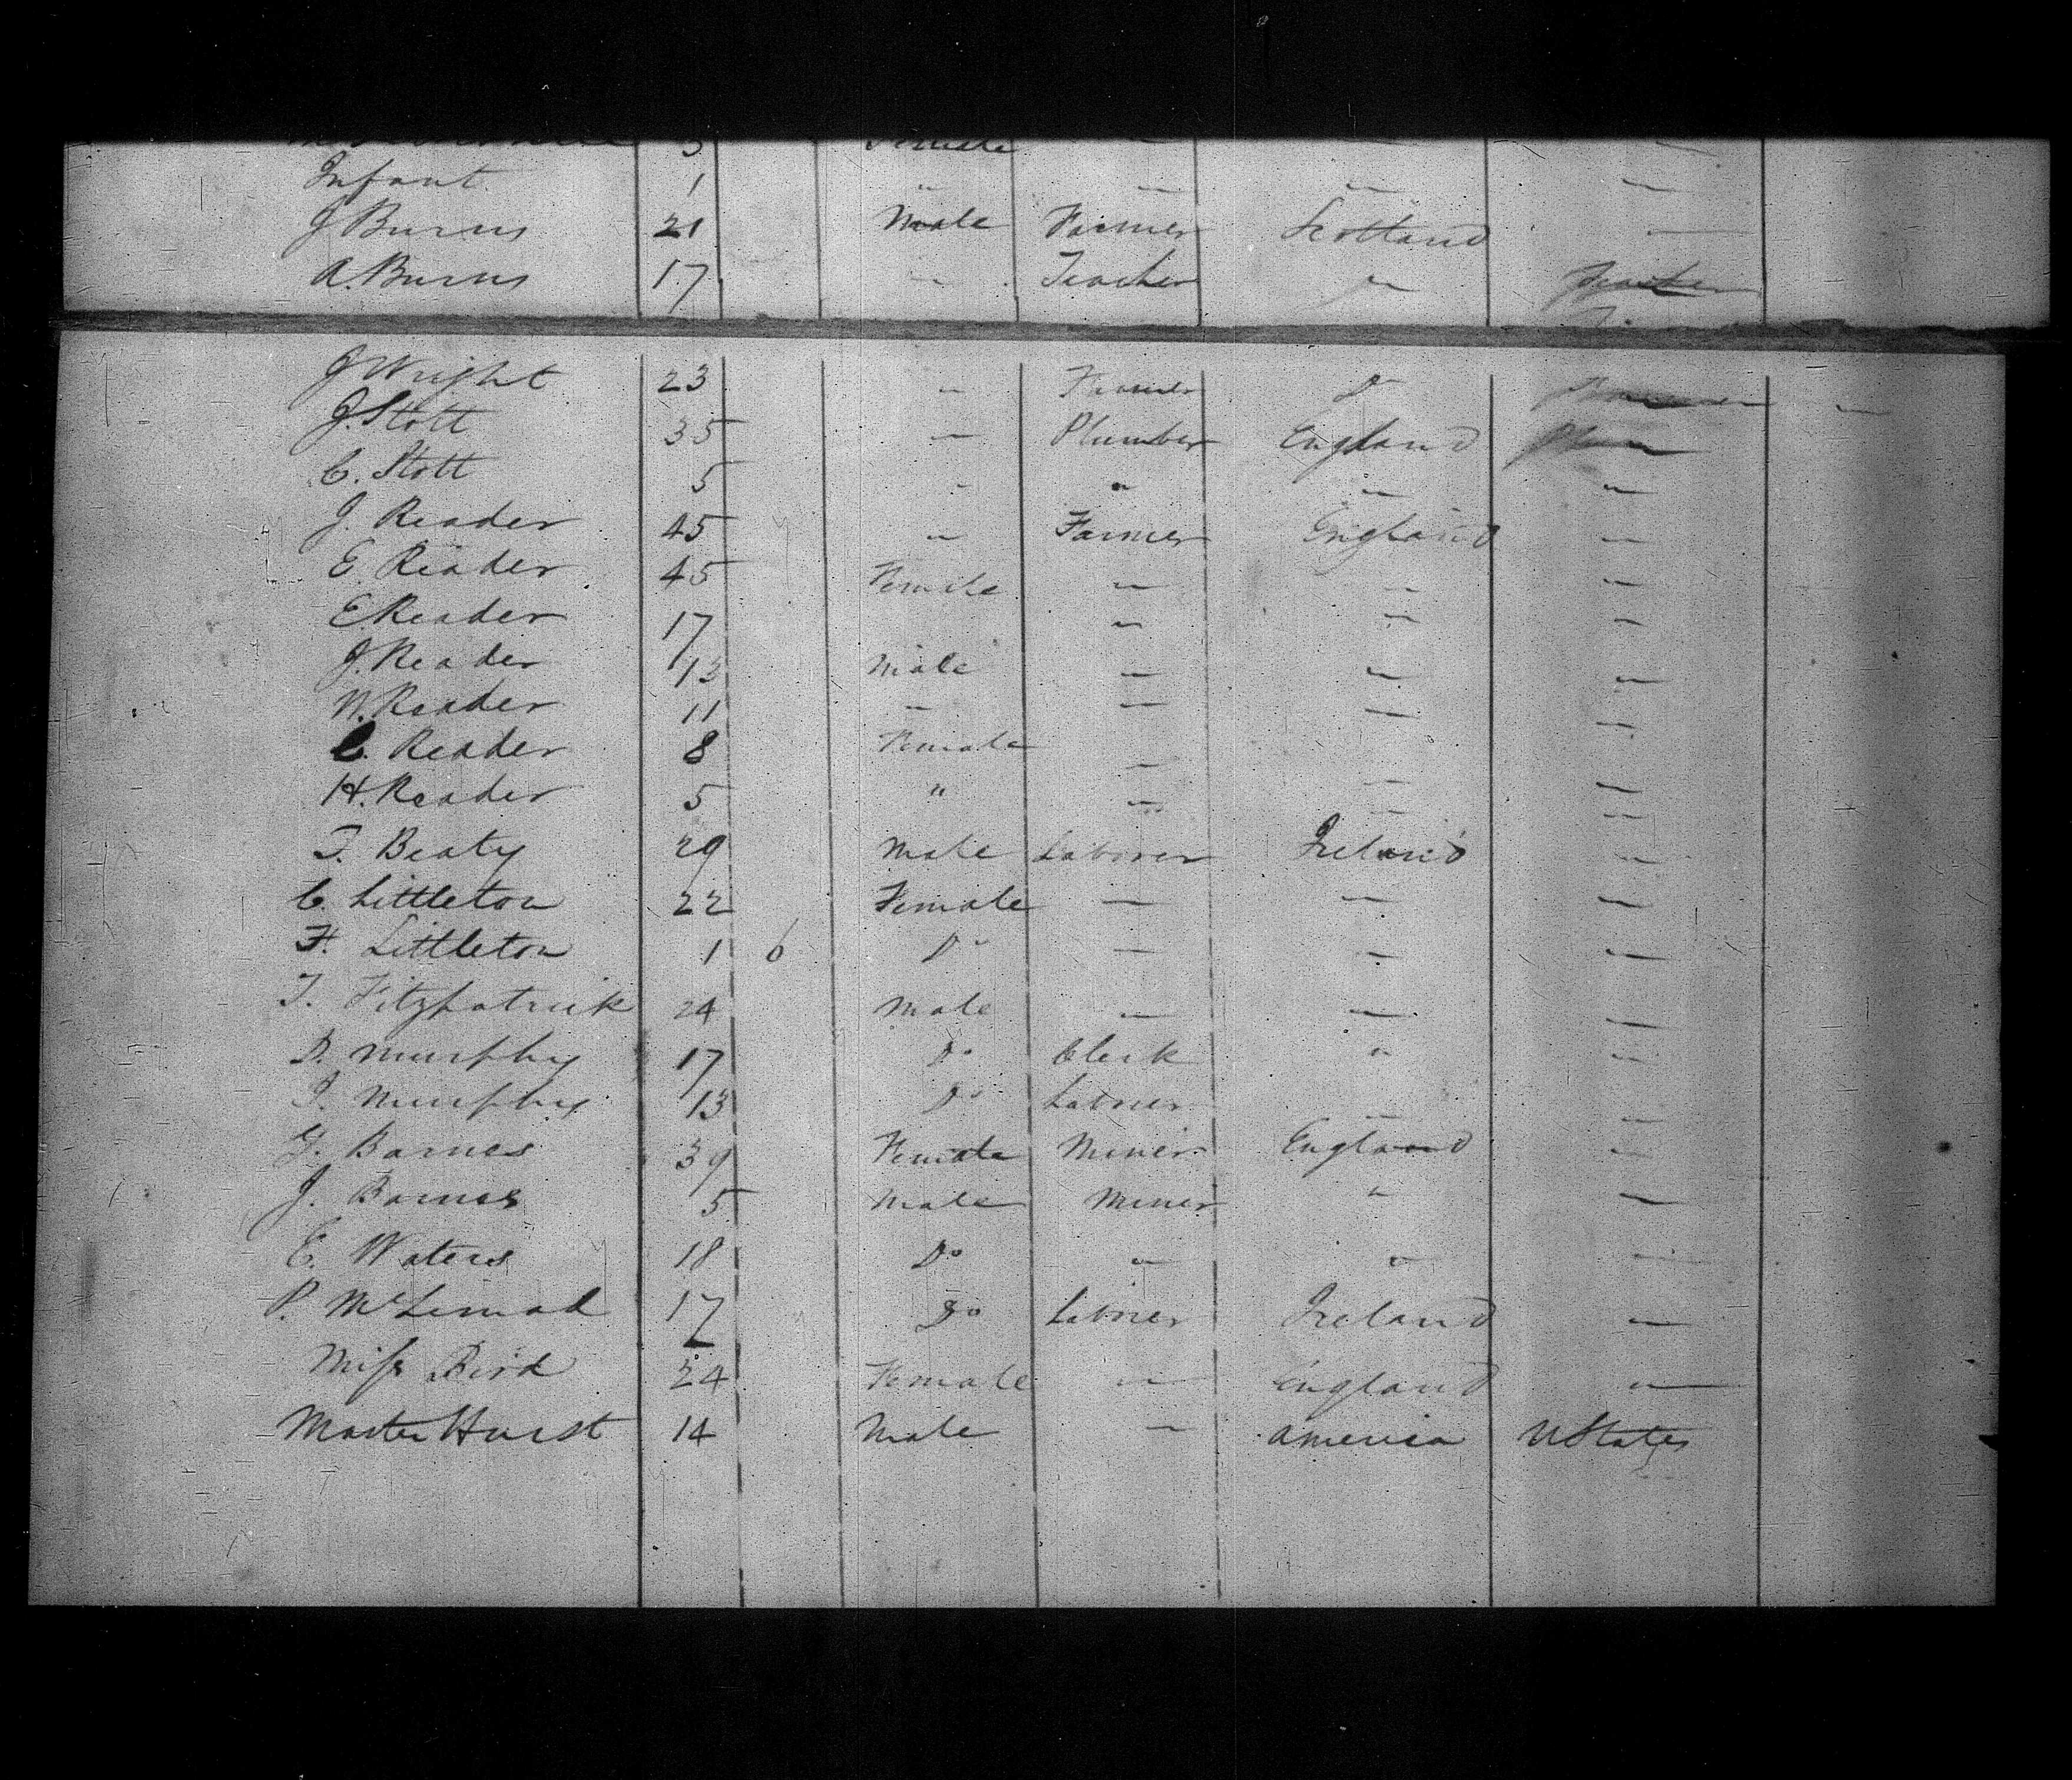 3 Female
Infant 1 " " " "
J Burns 21 Male Farmer Scotland —
A. Burns 17 " Teacher " Teacher
J Wright 23 " Farmer Do
J. Stott 35 " Plumber England Plum
C. Stott 5 " " " "
J. Reader 45 " Farmer England "
E. Reader 45 Female " " "
E Reader 17 " " "
J. Reader 13 Male " " "
W. Reader 11 " " " "
C. Reader 8 Female " "
H. Reader 5 " " " "
T. Beaty 29 Male Laborer Ireland "
C. Littleton 22 Female — — "
F. Littleton 1 6 Do — " "
T. Fitzpatrick 24 Male " " —
D. Murphy 17 Do Clerk " "
J. Murphy 13 Do Laborer " "
G. Barnes 39 Female Miner England "
J. Barnes 5 Male Miner " "
E. Waters 18 Do " " "
P. 17 Do Laborer Ireland "
Miss Bird 24 Female " England "
Master Hurst 14 Male " America U States